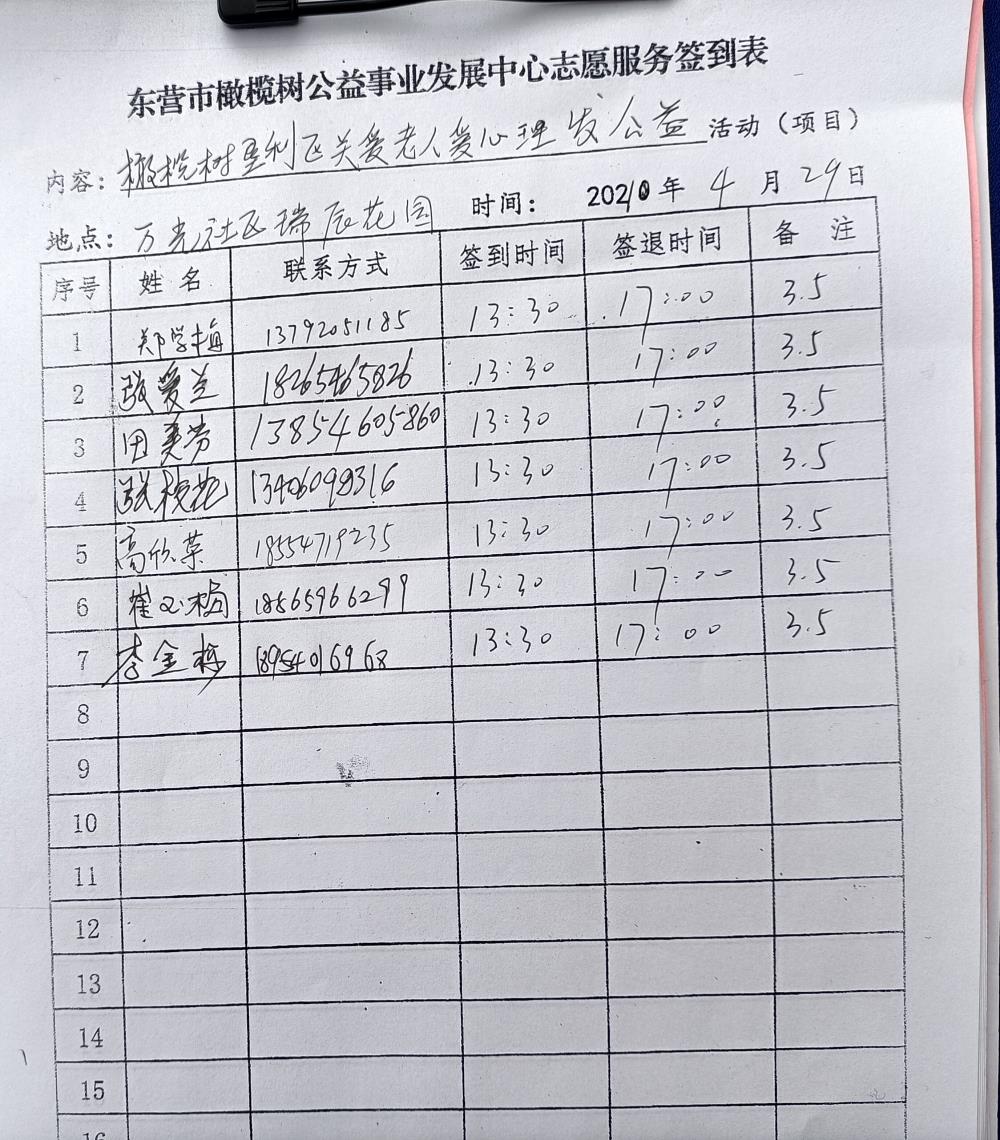 东营市橄榄树公益事业发展中心志愿服务签到表
内容：橄榄树垦利区关爱老人爱心理发公益 活动（项目）
地点：万光社区瑞辰花园 时间： 2020年 4 月 29日
序号 姓名 联系方式 签到时间 签退时间 备 注
1 郑学梅 13792051185 13:30 17:00 3.5
2 张爱兰 18265465826 13:30 17:00 3.5
3 田美芳 13854605860 13:30 17:00 3.5
4 张桂花 13406098316 13:30 17:00 3.5
5 高欣荣 18554719235 13:30 17:00 3.5
6 崔 18565966299 13:30 17:00 3.5
7 李金栋 18954016968 13:30 17:00 3.5
8
9
10
11
12
13
14
15
16